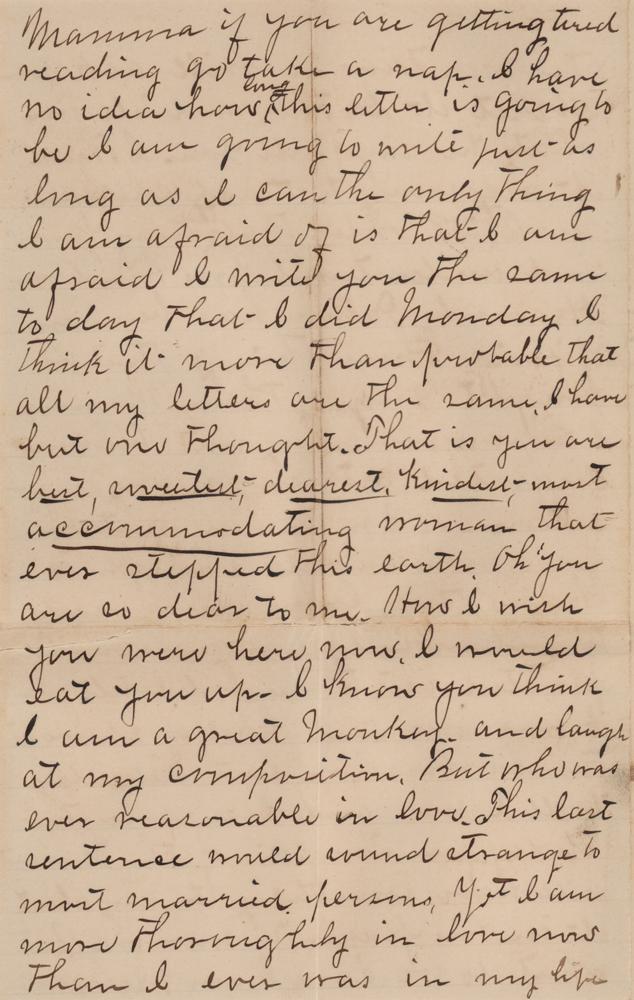 Mamma if you are getting tired
reading go take a nap. I have
no idea how long this letter is going to
be I am going to write just as
long as I can the only thing
I am afraid of is that I am
afraid I write you the same
to day that I did Monday I
think it more than probable that
all my letters are the same, I have
but one thought. That is you are
best, sweetest, dearest, kindest, most
accommodating woman that
ever stepped this earth. Oh! you
are so dear to me. How I wish
you were here now. I would
eat you up. I know you think
I am a great Monkey. and laugh
at my composition. But who was
ever reasonable in love. This last
sentence would sound strange to
most married persons, Yet I am
more thoroughly in love now
than I ever was in my life